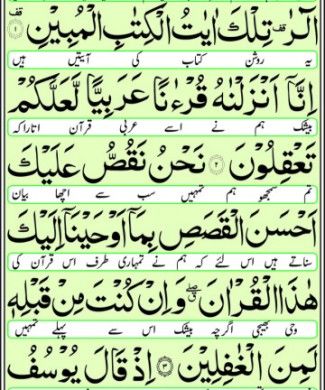 الٓرٰ قف تِلْكَ اٰيٰتُ الْكِتٰبِ الْمُبِيْنِ ۟ قف ۱
یہ روشن کتاب کی آیتیں ہیں
اِنَّاۤ اَنْزَلْنٰهُ قُرْءٰنًا عَرَبِيًّا لَّعَلَّكُمْ
بیشک ہم نے اسے عربی قرآن اتارا کہ
تَعْقِلُوْنَ ۲ نَحْنُ نَقُصُّ عَلَيْكَ
تم سمجھو ہم تمہیں سب سے اچھا بیان
اَحْسَنَ الْقَصَصِ بِمَاۤ اَوْحَيْنَاۤ اِلَيْكَ
سناتے ہیں اس لئے کہ ہم نے تمہاری طرف اس قرآن کی
هٰذَا الْقُرْاٰنَ وَاِنْ كُنْتَ مِنْ قَبْلِهٖ
وحی بھیجی اگرچہ بیشک اس سے پہلے تمہیں
لَمِنَ الْغٰفِلِيْنَ ۳ اِذْ قَالَ يُوْسُفُ